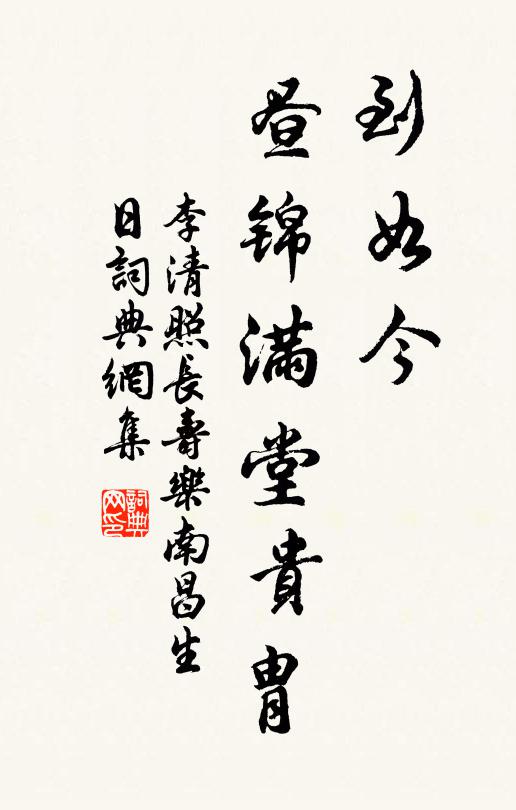 到如今
昼锦满堂貴胄
李清照長壽樂南昌生
日詞典網集
詞典网印